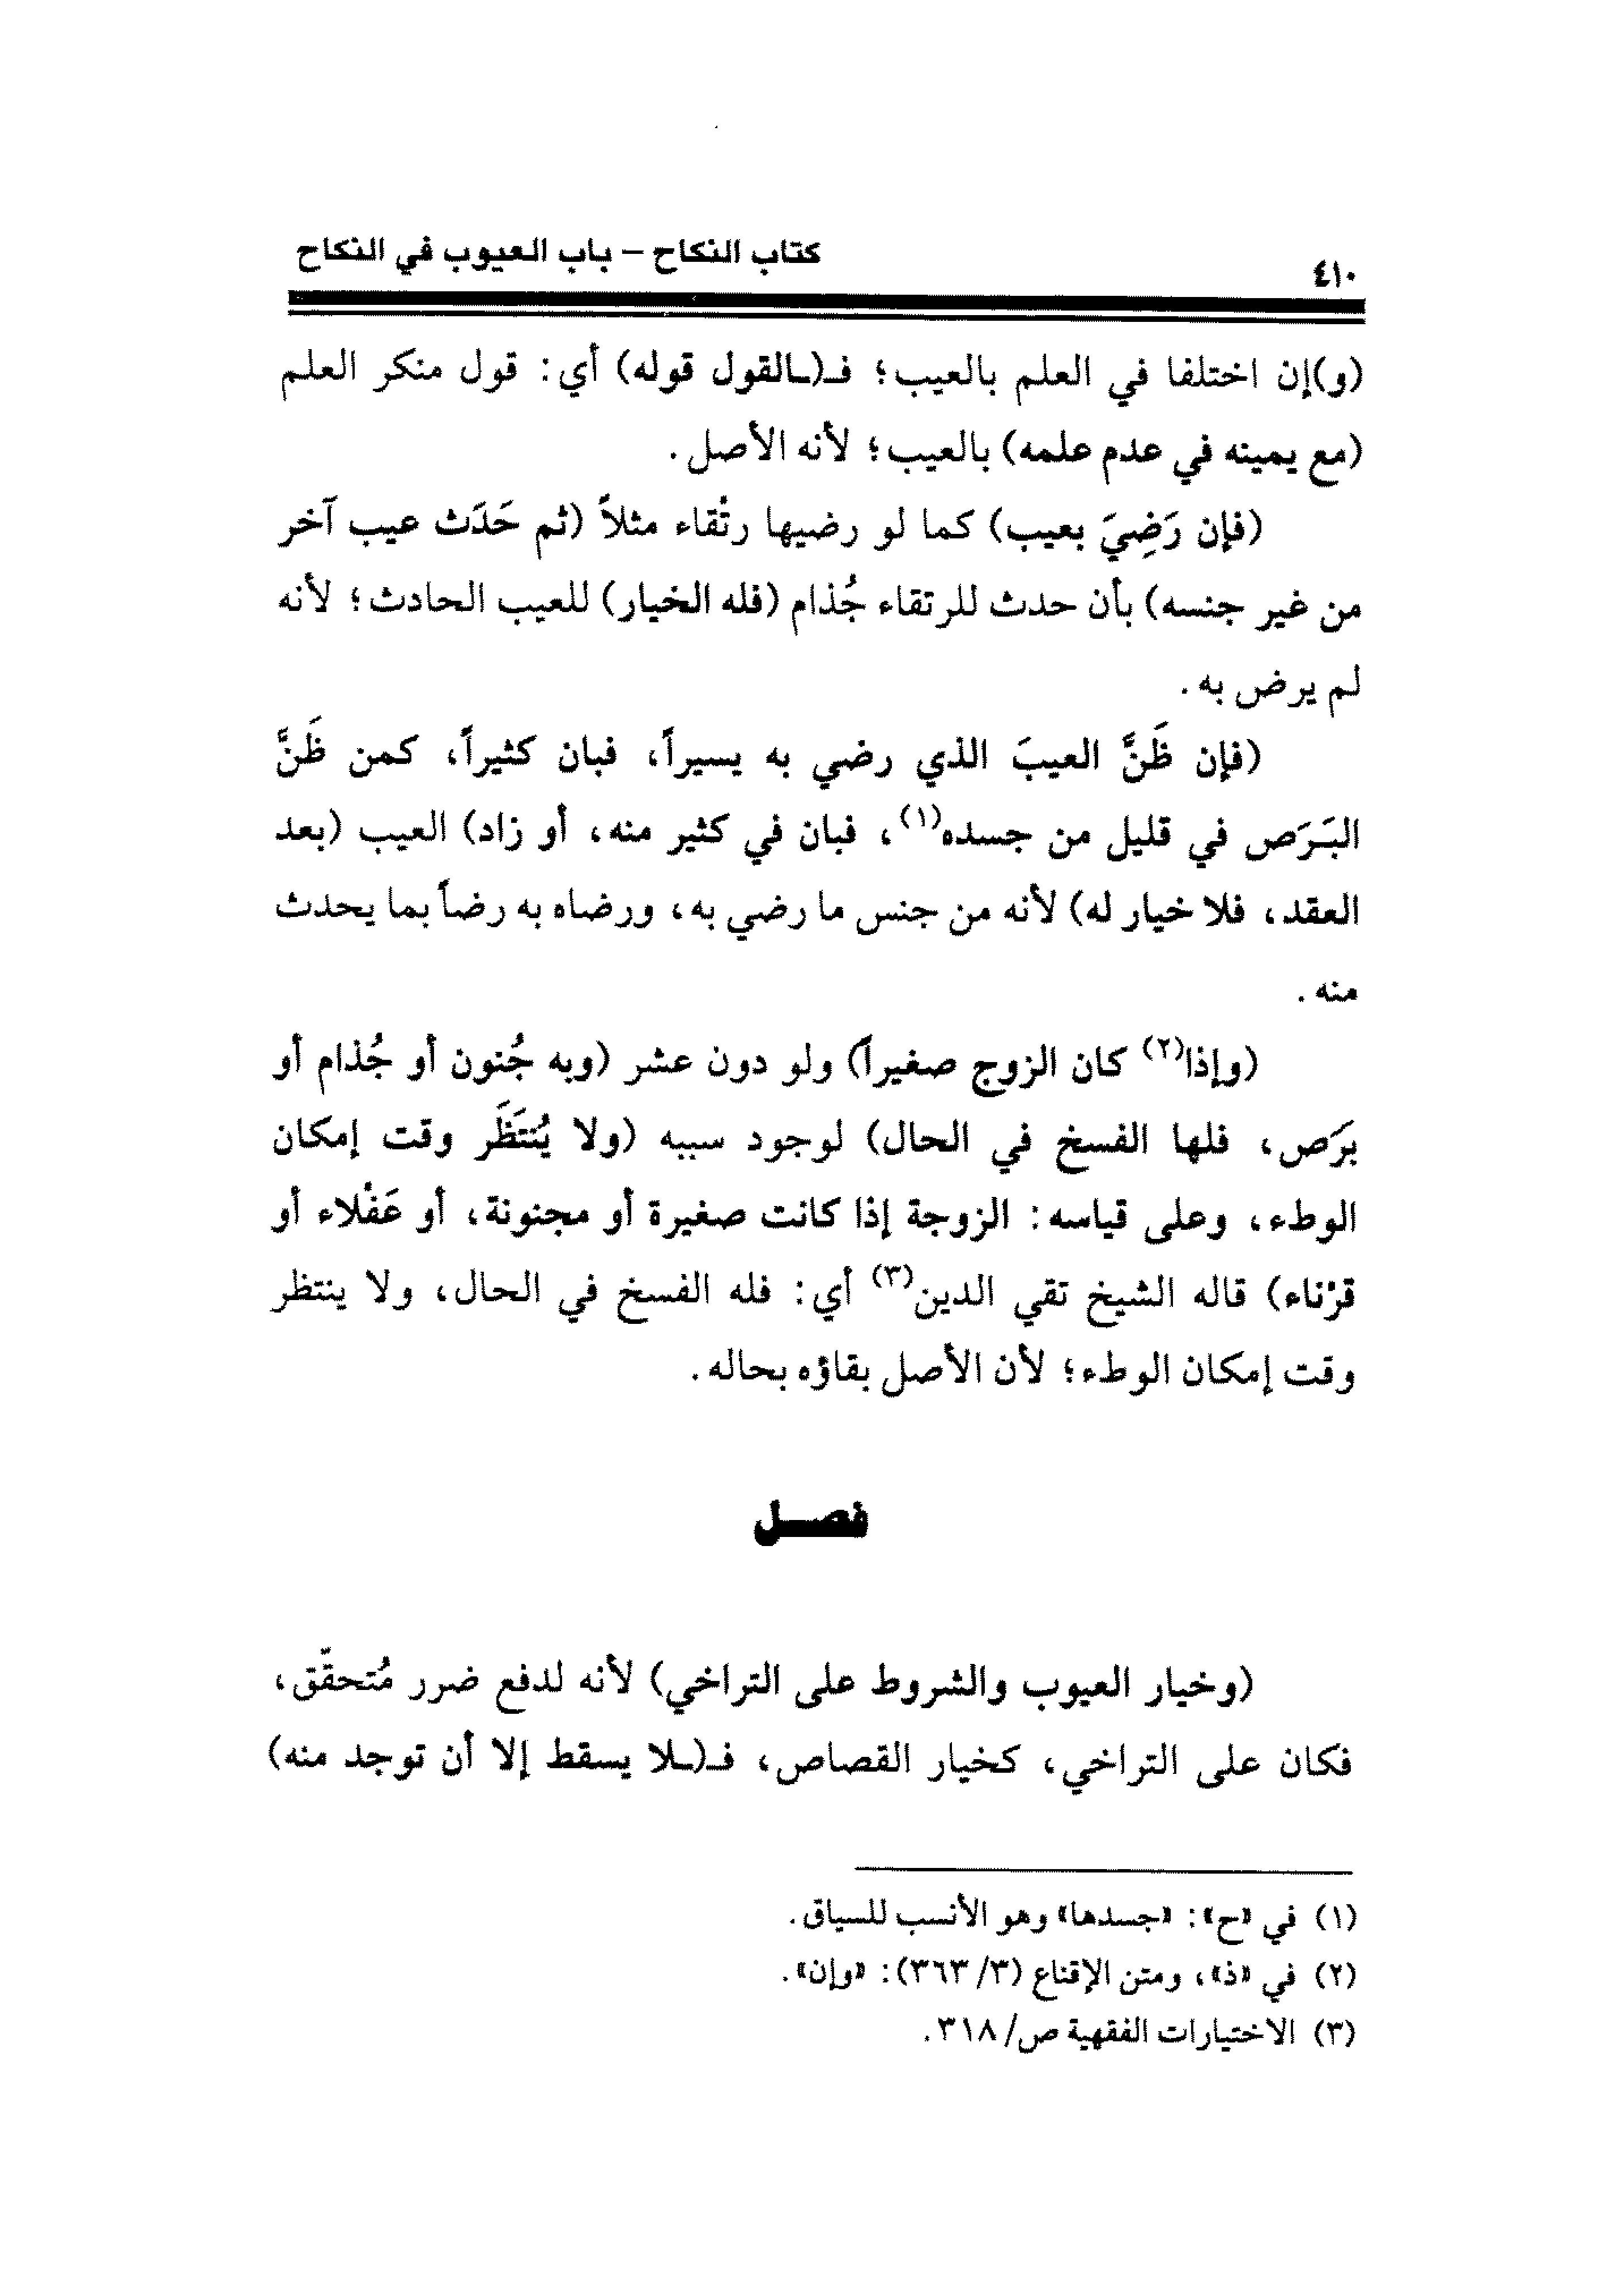 ٤١٠
كتاب النكاح – باب العيوب في النكاح
(و)إن اختلفا في العلم بالعيب؛ فـ(ـالقول قوله) أي: قول منكر العلم
(مع يمينه في عدم علمه) بالعيب؛ لأنه الأصل.
(فإن رَضِيَ بعيب) كما لو رضيها رتْقاء مثلاً (ثم حَدَث عيب آخر
من غير جنسه) بأن حدث للرتقاء جُذام (فله الخيار) للعيب الحادث؛ لأنه
لم يرض به.
(فإن ظَنَّ العيبَ الذي رضي به يسيراً، فبان كثيراً، كمن ظَنَّ
البَرَص في قليل من جسده(١)، فبان في كثير منه، أو زاد) العيب (بعد
العقد، فلا خيار له) لأنه من جنس ما رضي به، ورضاه به رضاً بما يحدث
منه.
(وإذا(٢) كان الزوج صغيراً) ولو دون عشر (وبه جُنون أو جُذام أو
برَص، فلها الفسخ في الحال) لوجود سببه (ولا يُنتَظَر وقت إمكان
الوطء، وعلى قياسه: الزوجة إذا كانت صغيرة أو مجنونة، أو عَفْلاء أو
قرْناء) قاله الشيخ تقي الدين(٣) أي: فله الفسخ في الحال، ولا ينتظر
وقت إمكان الوطء؛ لأن الأصل بقاؤه بحاله.
فصـــل
(وخيار العيوب والشروط على التراخي) لأنه لدفع ضرر مُتحقّق،
فكان على التراخي، كخيار القصاص، فـ(ـلا يسقط إلا أن توجد منه)
(١) في «ح»: «جسدها» وهو الأنسب للسياق.
(٢) في «ذ»، ومتن الإقناع (٣/ ٣٦٣): «وإن».
(٣) الاختيارات الفقهية ص/ ٣١٨.